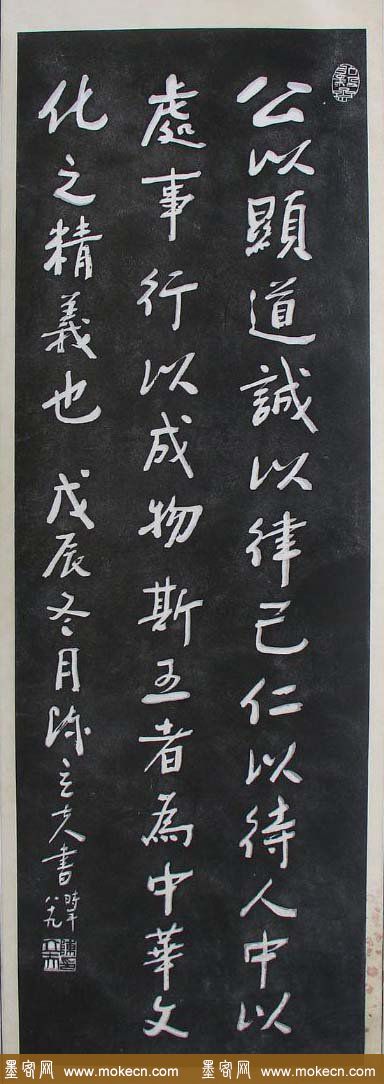 公以顯道誠以律己仁以待人中以
處事行以成物斯五者為中華文
化之精義也 戊辰冬月陳立夫書
時年
八九
墨客网 www.mokecn.com 墨客网 www.mokecn.com